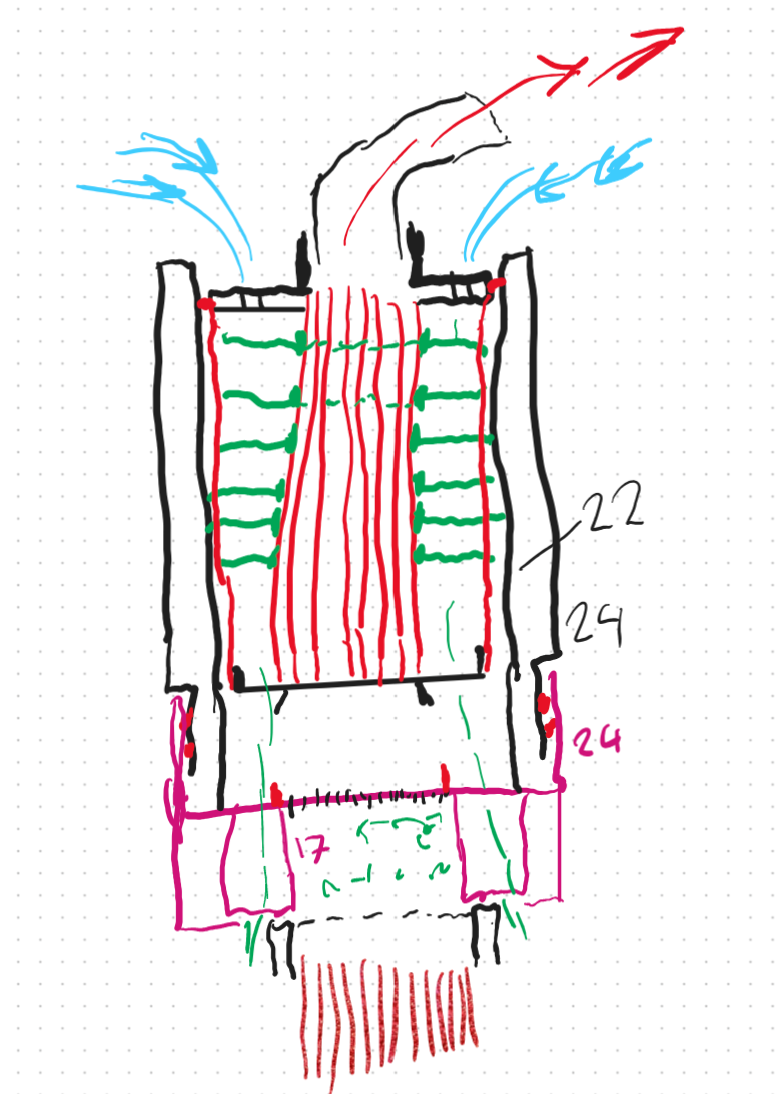 22
24
24
17